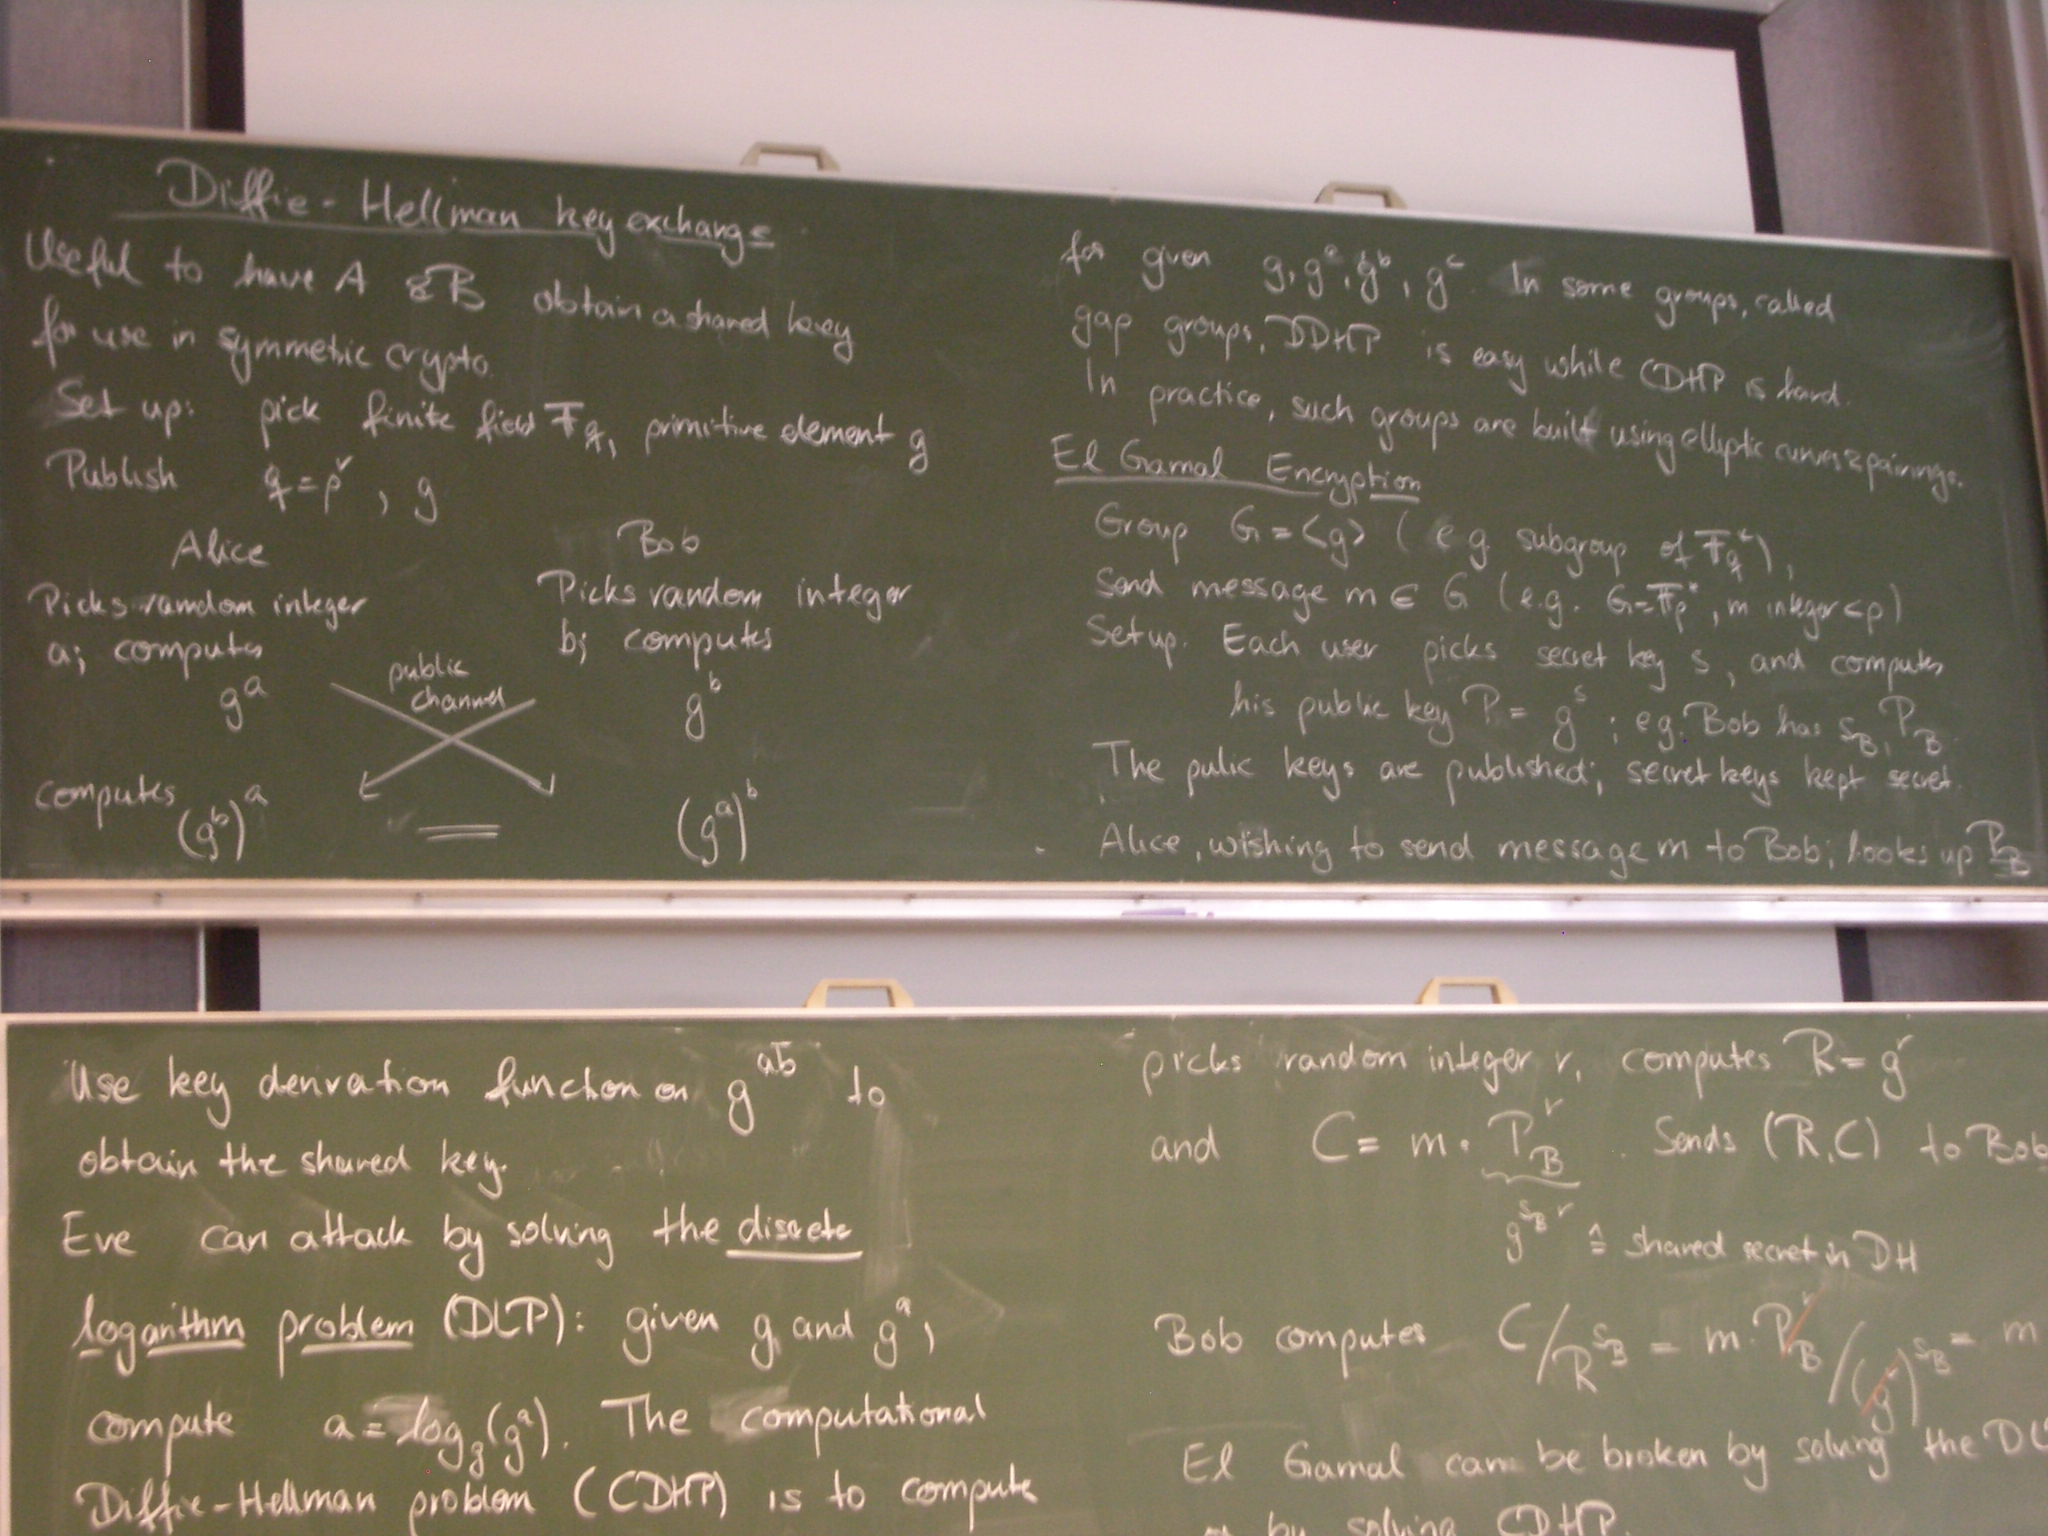 Diffie-Hellman key exchange
Useful to have A & B obtain a shared key
for use in symmetric crypto.
Set up: pick finite field 𝔽_q, primitive element g
Publish q = p^r, g
Alice Bob
Picks random integer Picks random integer
a; computes b; computes
public
channel
g^a g^b
computes
(g^b)^a = (g^a)^b
Use key derivation function on g^ab to
obtain the shared key.
Eve can attack by solving the discrete
logarithm problem (DLP): given g, and g^a,
compute a = log_g(g^a). The computational
Diffie-Hellman problem (CDHP) is to compute
for given g, g^a, g^b, g^c. In some groups, called
gap groups, DDHP is easy while CDHP is hard.
In practice, such groups are built using elliptic curves & pairings.
El Gamal Encryption
Group G = <g> (eg subgroup of 𝔽_q^*),
Send message m ∈ G (e.g. G = 𝔽_p^*, m integer < p)
Set up. Each user picks secret key s, and computes
his public key P = g^s; eg. Bob has s_B, P_B.
The pulic keys are published; secret keys kept secret.
Alice, wishing to send message m to Bob; looks up P_B
picks random integer r, computes R = g^r
and C = m · P_B^r. Sends (R, C) to Bob
g^{s_B r} ≙ shared secret in DH
Bob computes C/R^{s_B} = m · P_B^r/(g^r)^{s_B} = m
El Gamal can be broken by solving the DL
by solving CDHP.